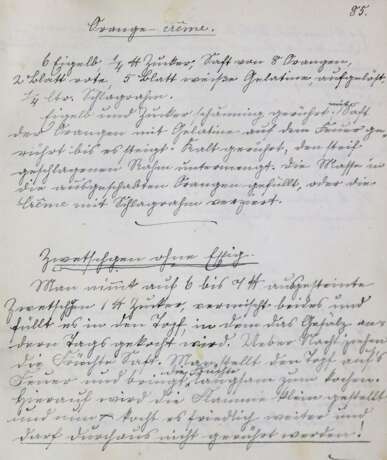 85.
Orange-Crême.
6 Eigelb ¼ ℔ Zucker, Saft von 8 Orangen,
2 Blatt rote 5 Blatt weiße Gelatine, aufgelöst,
¼ ltr. Schlagrahm.
Eigelb und Zucker schaumig gerührt, Saft
der Orangen mit Gelatine auf dem Feuer ge-
rührt bis es steigt. Kalt gerührt, den steif
geschlagenen Rahm untermengt. Die Masse in
die ausgeschabten Orangen gefüllt, oder die
Crême mit Schlagrahm verziert.
Zwetschgen ohne Essig.
Man nimmt auf 6 bis 7 ℔ ausgesteinte
Zwetschgen 1 ℔ Zucker, vermischt beides und
füllt es in den Topf, in dem das Gesälz an-
dern Tags gekocht wird. Ueber Nacht ziehen
die Früchte Saft. Man stellt den Topf aufs
Feuer und bringt die Früchte langsam zum kochen.
Hierauf wird die Flamme klein gestellt
und nun kocht es friedlich weiter und
darf durchaus nicht gerührt werden!